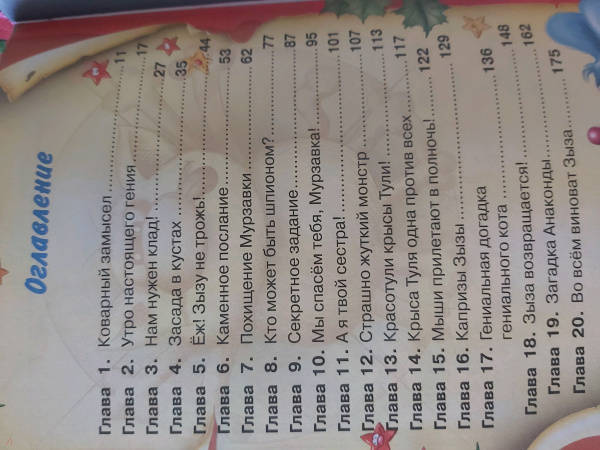 Оглавление
Глава 1. Коварный замысел ........ 11
Глава 2. Утро настоящего гения ........ 17
Глава 3. Нам нужен клад! ........ 27
Глава 4. Засада в кустах ........ 35
Глава 5. Ёж! Зызу не трожь! ........ 44
Глава 6. Каменное послание ........ 53
Глава 7. Похищение Мурзавки ........ 62
Глава 8. Кто может быть шпионом? ........ 77
Глава 9. Секретное задание ........ 87
Глава 10. Мы спасём тебя, Мурзавка! ........ 95
Глава 11. А я твой сестра! ........ 101
Глава 12. Страшно жуткий монстр ........ 107
Глава 13. Красотули крысы Тули! ........ 113
Глава 14. Крыса Туля одна против всех ........ 117
Глава 15. Мыши прилетают в полночь! ........ 122
Глава 16. Капризы Зызы ........ 129
Глава 17. Гениальная догадка
гениального кота ........ 136
Глава 18. Зыза возвращается! ........ 148
Глава 19. Загадка Анаконды ........ 162
Глава 20. Во всём виноват Зыза ........ 175